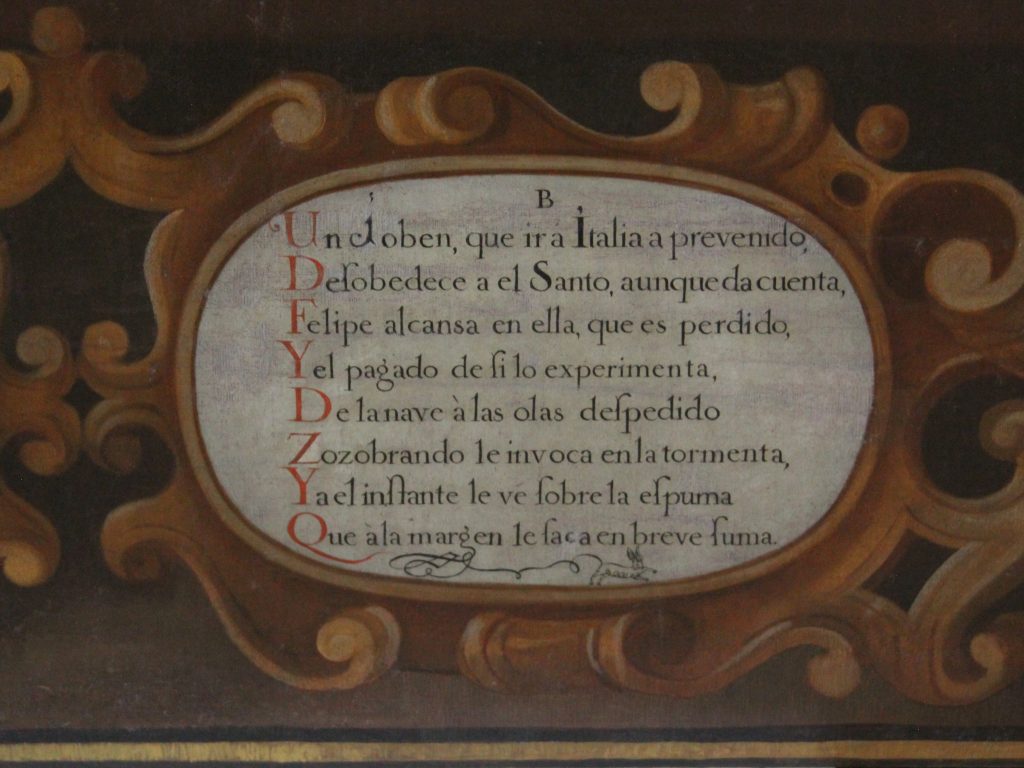 B
Un Joben, que ira á Italia a prevenido,
Deſobedece a el Santo, aunque da cuenta,
Felipe alcansa en ella, que es perdido,
Y el pagado de ſi lo experimenta,
De la nave à las olas deſpedido
Zozobrando le invoca en la tormenta,
Y a el inſtante le vé ſobre la eſpuma
Que à la margen le ſaca en breve ſuma.